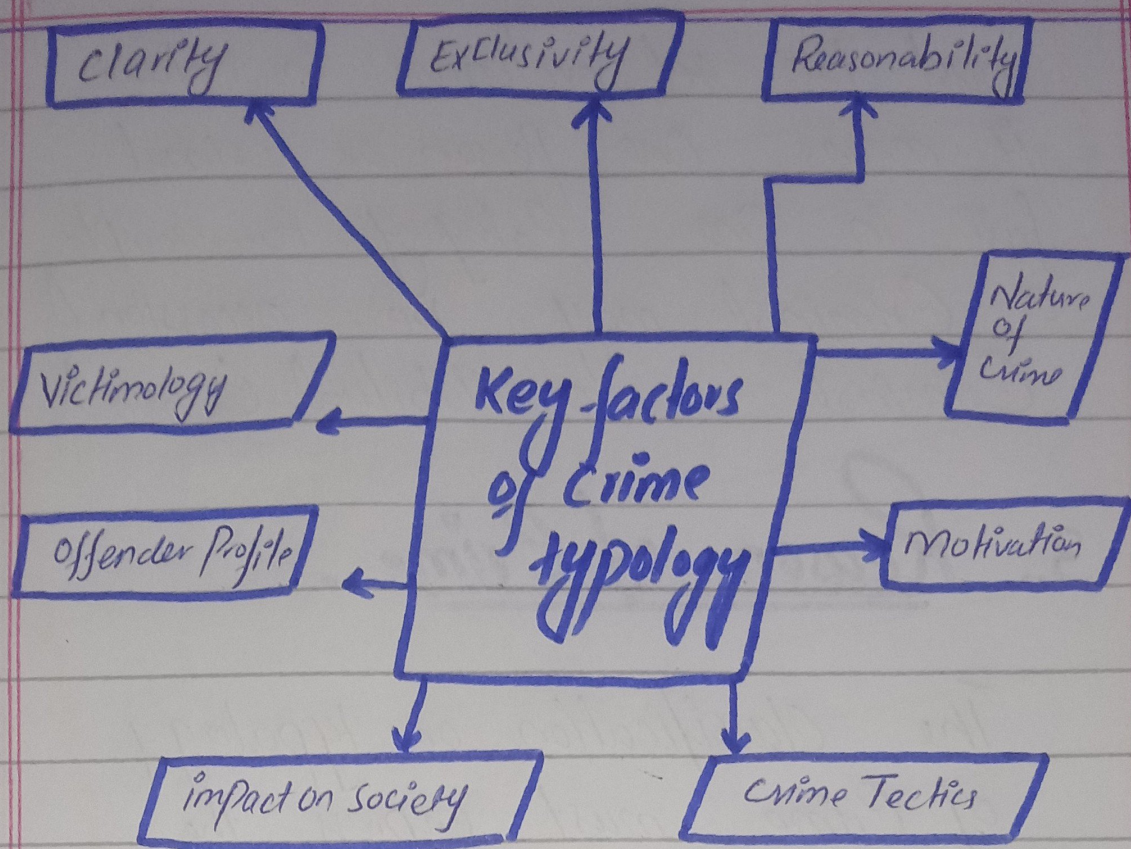 Clarity
Exclusivity
Reasonability
Nature
of
Crime
Victimology
Key factors
of Crime
typology
Offender Profile
Motivation
impact on Society
Crime Tectics